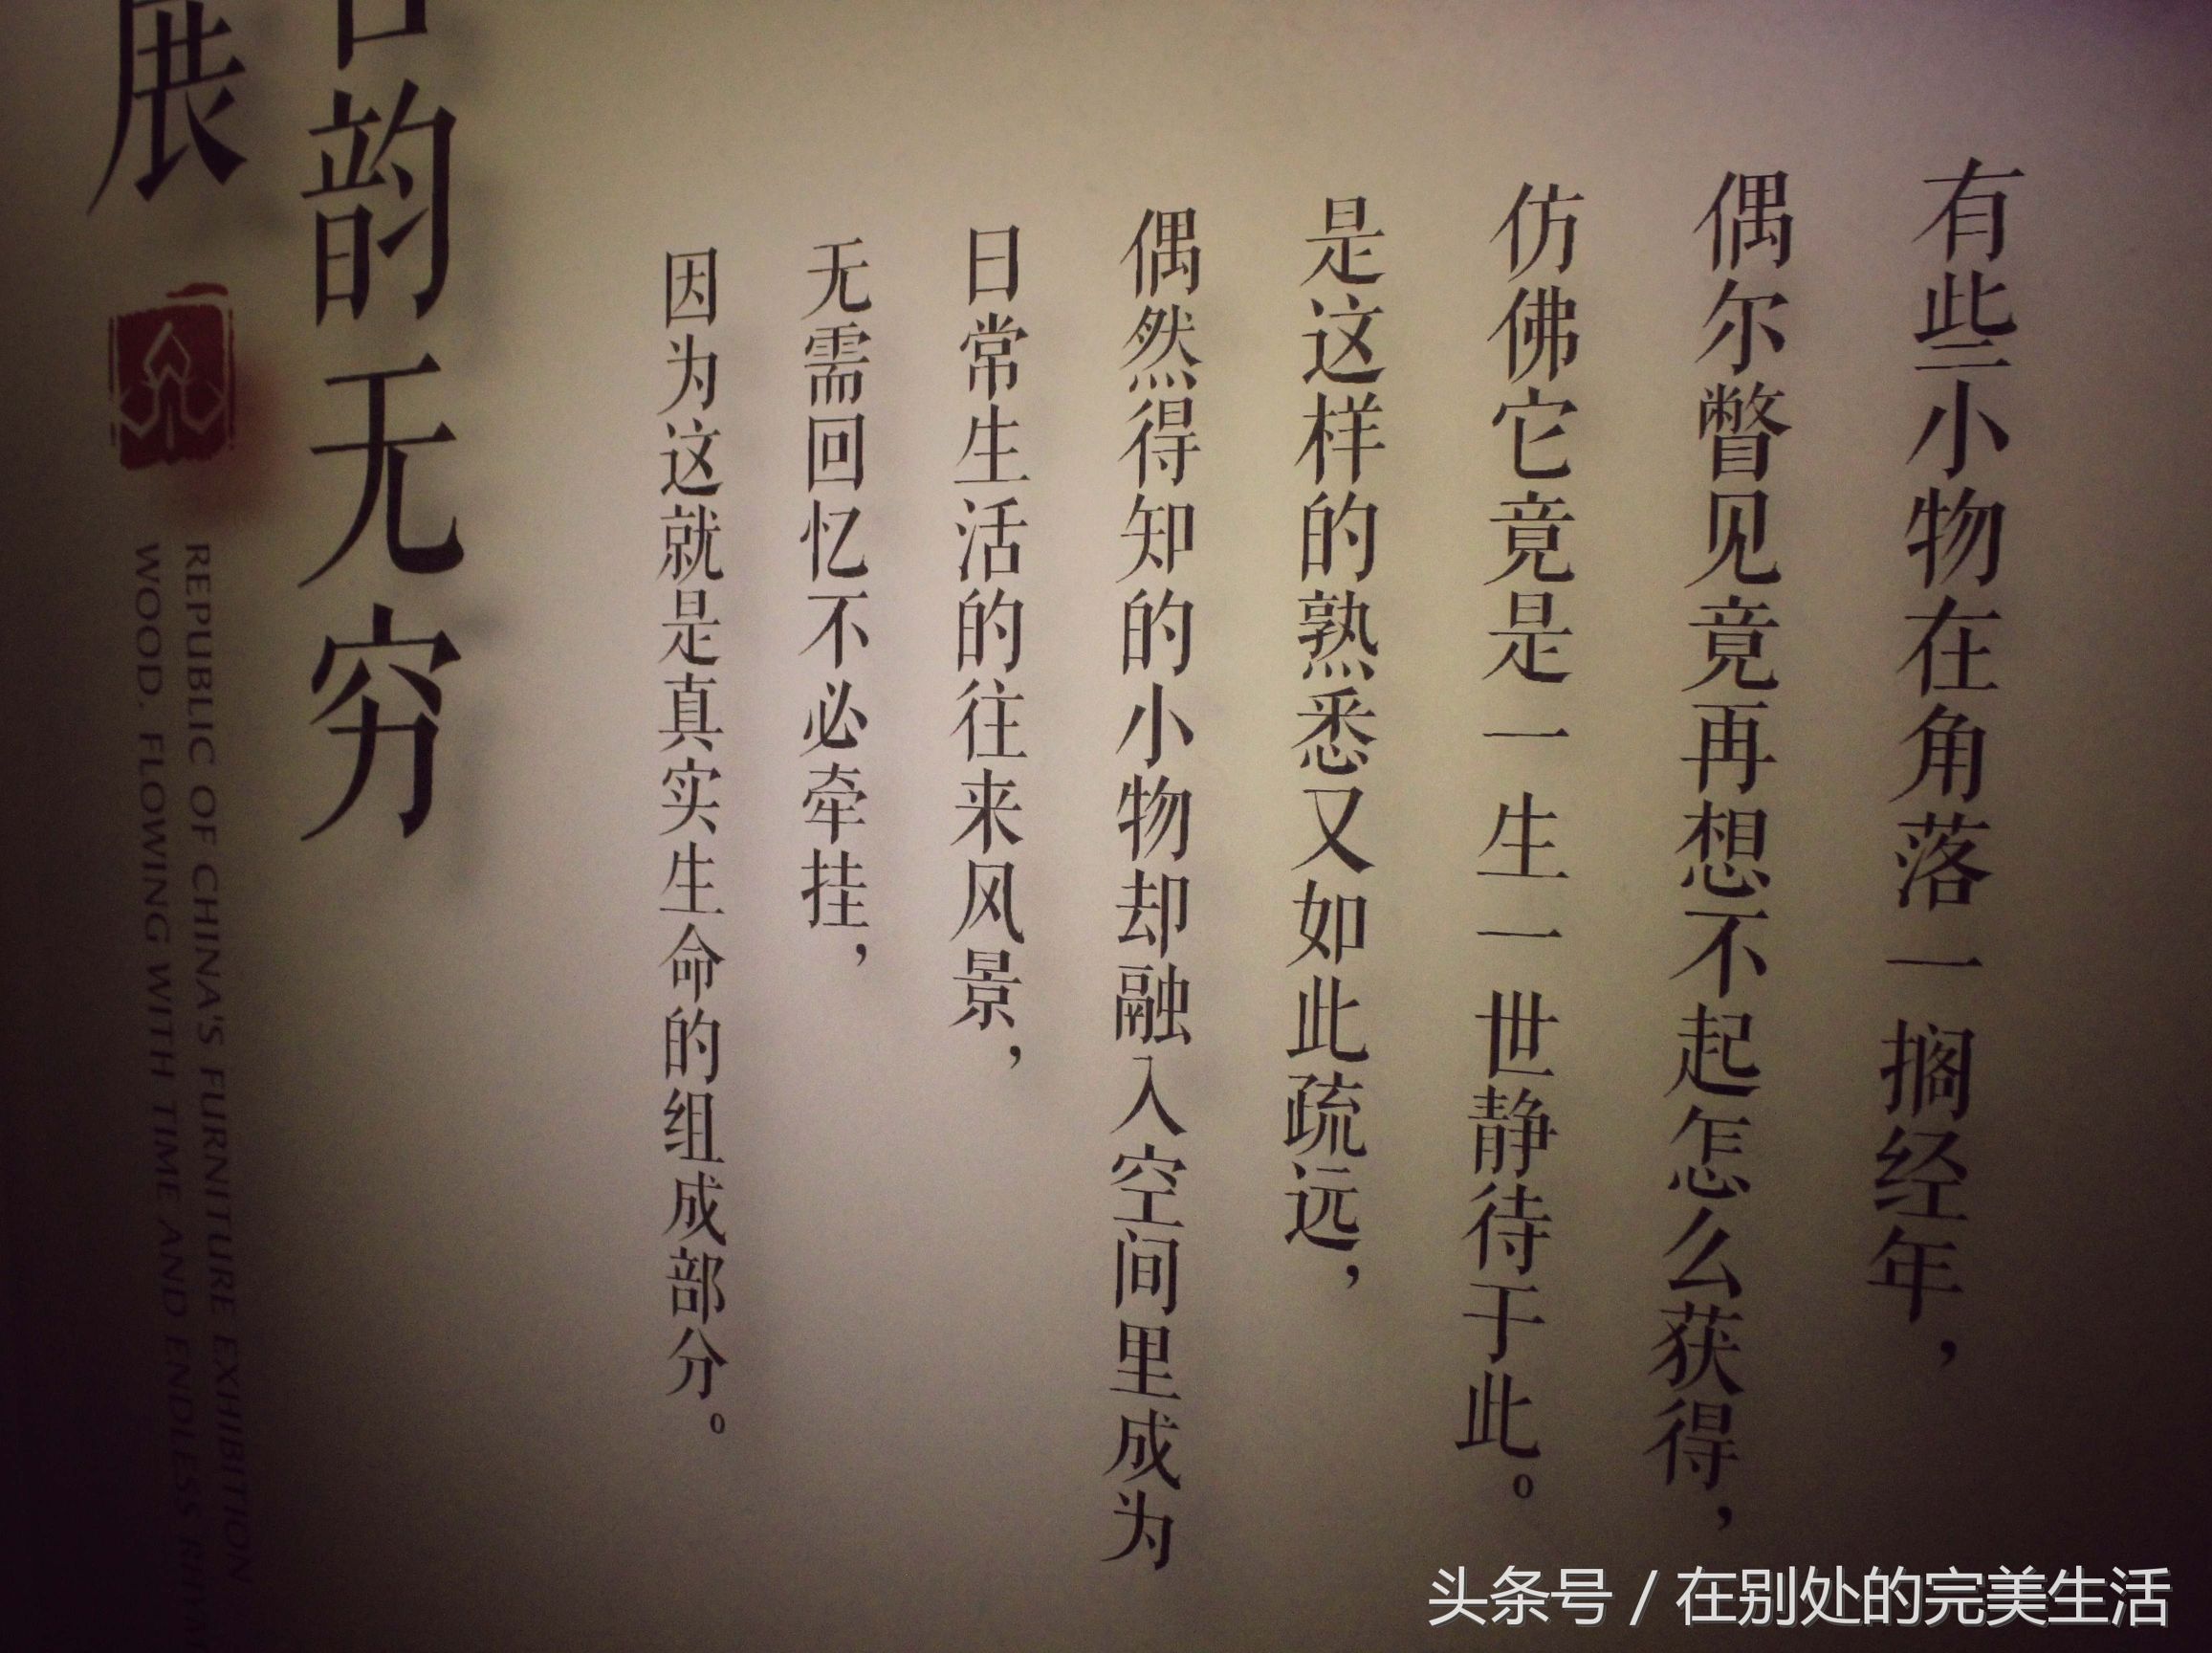 有些小物在角落一搁经年，
偶尔瞥见竟再想不起怎么获得，
仿佛它竟是一生一世静待于此。
是这样的熟悉又如此疏远，
偶然得知的小物却融入空间里成为
日常生活的往来风景，
无需回忆不必牵挂，
因为这就是真实生命的组成部分。
韵无穷
展
REPUBLIC OF CHINA'S FURNITURE EXHIBITION
WOOD. FLOWING WITH TIME AND ENDLESS
头条号 / 在别处的完美生活